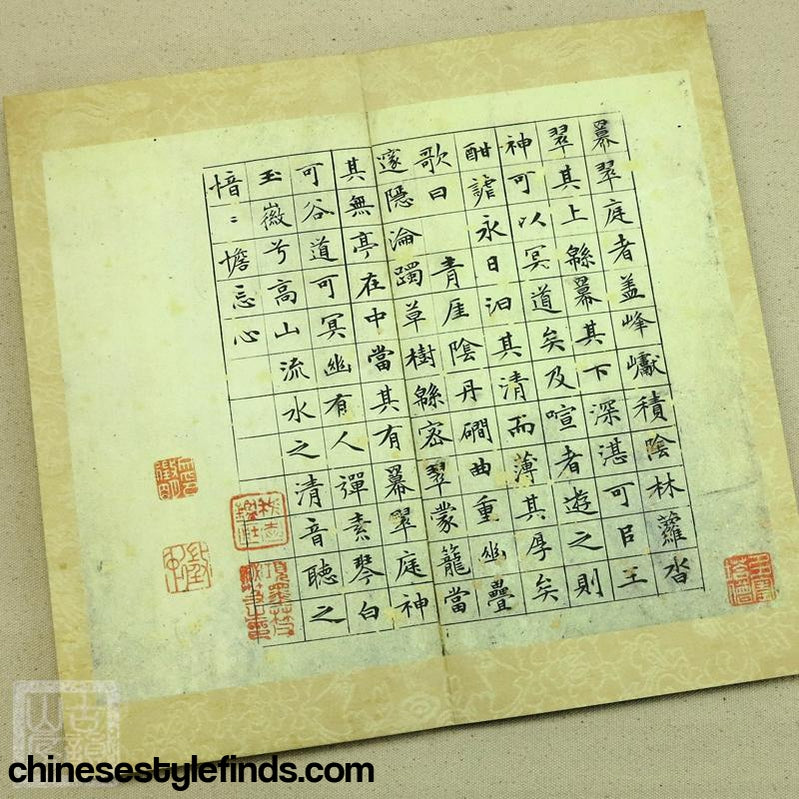 羃翠庭者盖峰巘積陰林蘿沓
翠其上緜羃其下深湛可㠯王
神可以冥道矣及喧者遊之則
酣謔永日汩其清而薄其厚矣
歌曰 青厓陰丹磵曲重幽疊
邃隱淪躅草樹緜密翠蒙籠當
其無亭在中當其有羃翠庭神
可谷道可冥幽有人彈素琴白
玉徽兮高山流水之清音聽之
愔〻憺忘心
chinesestylefinds.com